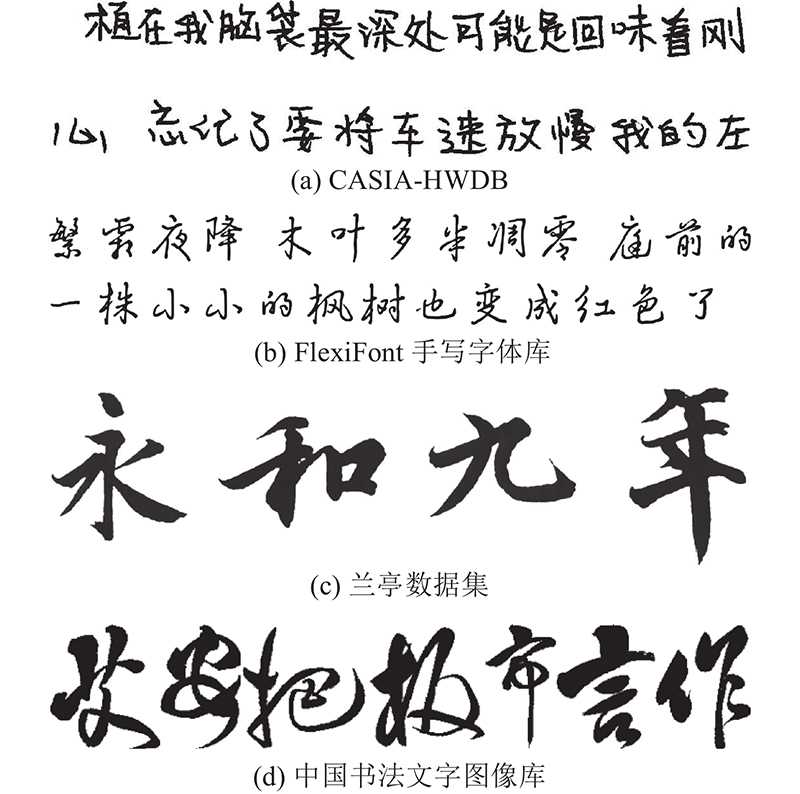 植在我脑袋最深处可能是回味着刚
心 忘记了要将车速放慢 我的左
(a) CASIA-HWDB
繁霜夜降 木叶多半凋零 庭前的
一株小小的枫树也变成红色了
(b) FlexiFont 手写字体库
永和九年
(c) 兰亭数据集
艾安把板市言作
(d) 中国书法文字图像库